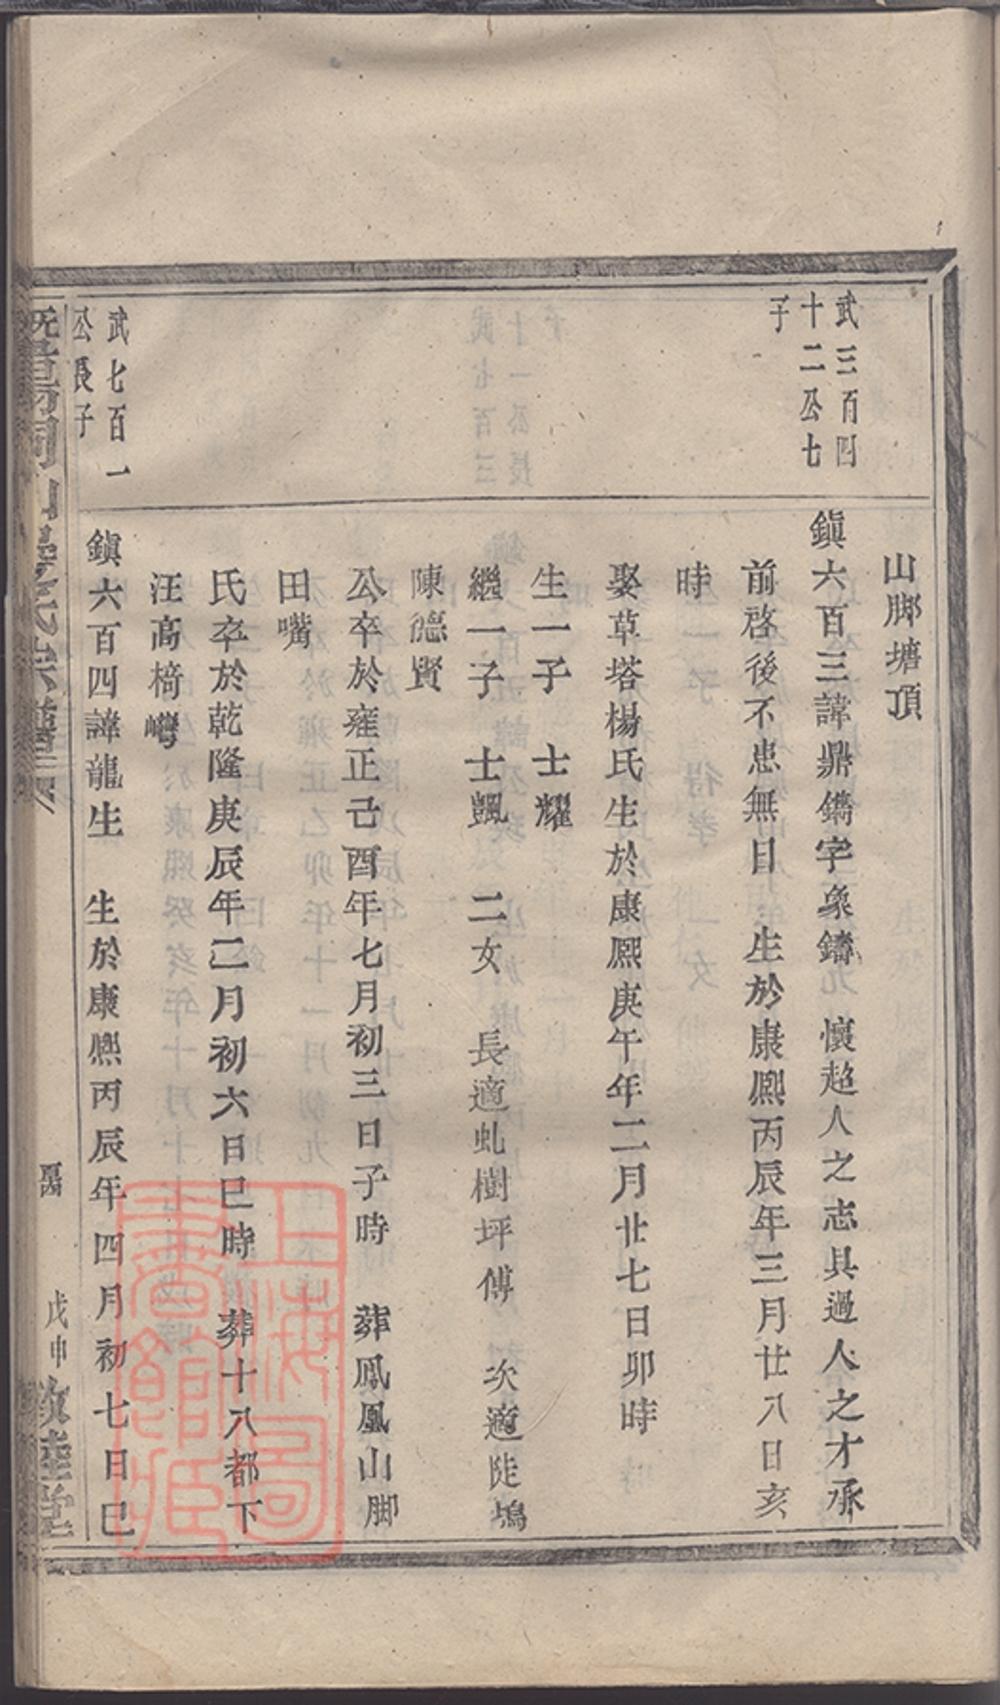 山脚塘頂
武三百四
十二公七
子
鎮六百三諱鼎鐫字象鑄 懷超人之志具過人之才承
前啓後不患無日 生於康熙丙辰年三月廿八日亥
時
娶草塔楊氏生於康熙庚午年二月廿七日卯時
生一子 士耀
繼一子 士颽 二女 長適虬樹坪傅 次適陡塢
陳德賢
公卒於雍正己酉年七月初三日子時 葬鳳凰山脚
田嘴
氏卒於乾隆庚辰年二月初六日巳時 葬十八都下
汪高樀灣
武七百一
公長子
鎮六百四諱龍生 生於康熙丙辰年四月初七日巳
氏宗譜
戊申 敦睦堂
上海圖
書館藏